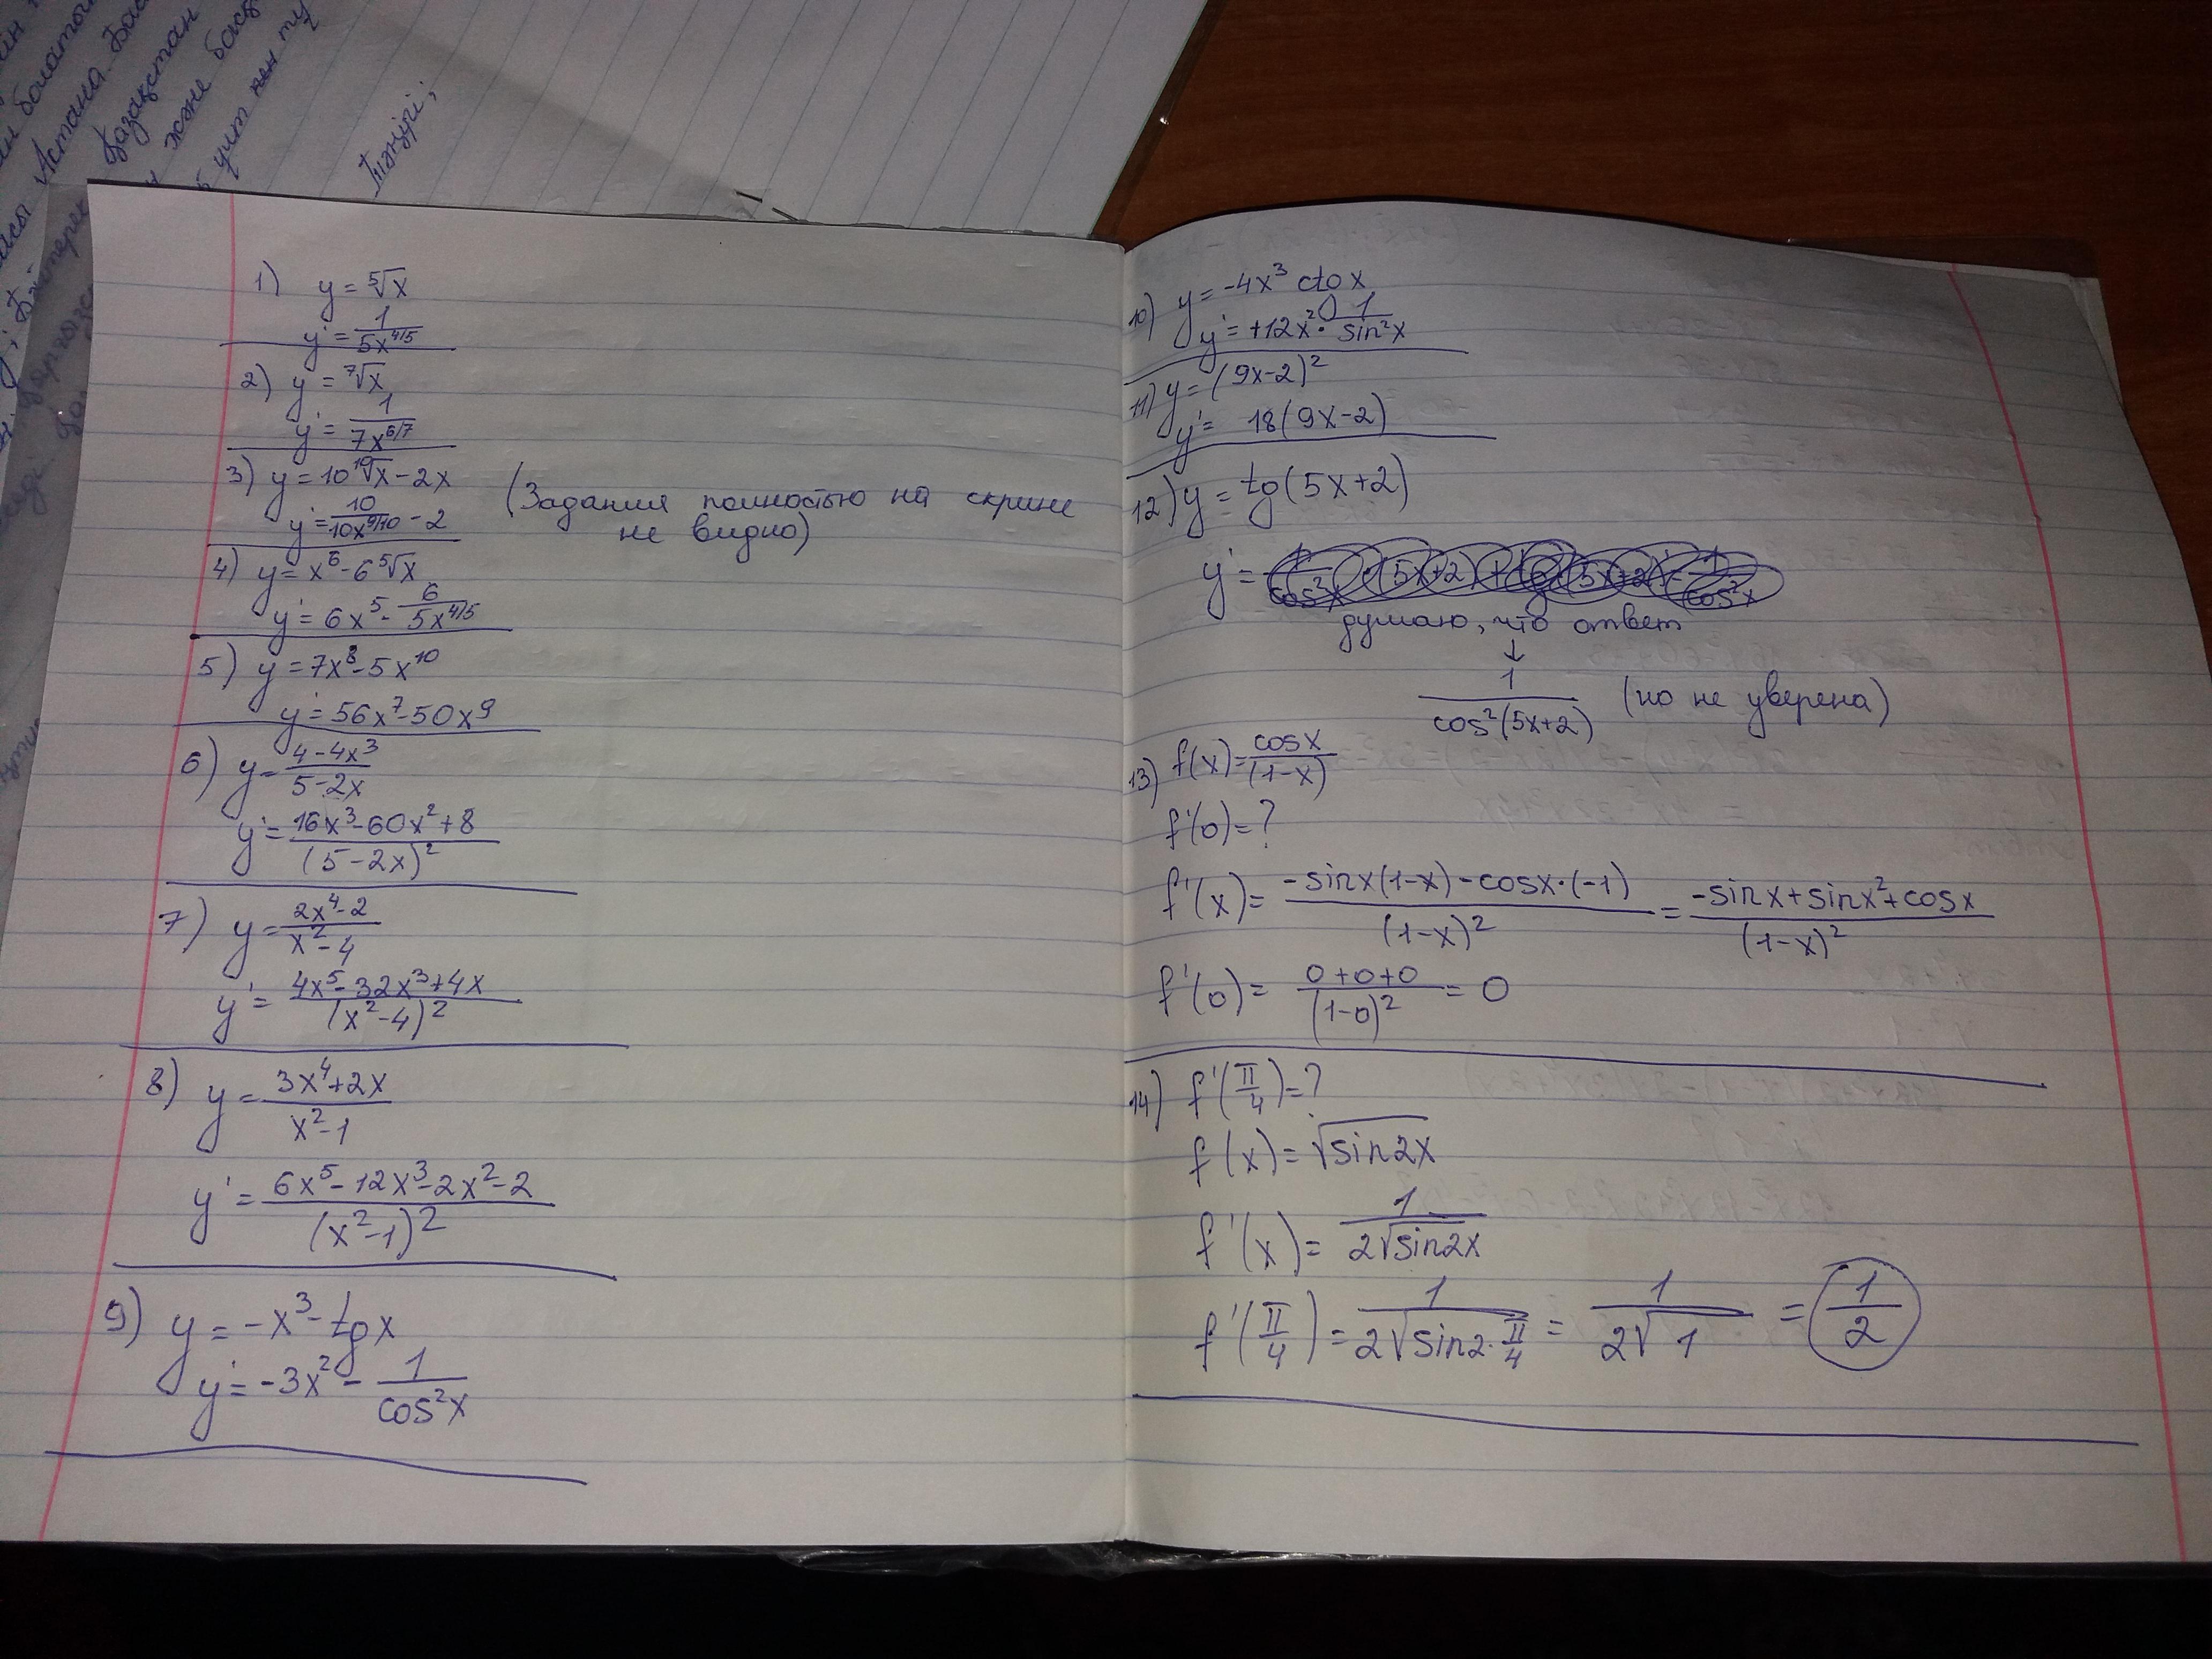 Қазақстан
Астана
және
Тәңірі;
1) y = ⁵√x
y' = 1/5x^4/5
2) y = ⁷√x
y' = 1/7x^6/7
3) y = 10 ¹⁰√x - 2x
y' = 10/10x^9/10 - 2
(Задания полностью на скрине
не видно)
4) y = x⁶ - 6 ⁵√x
y' = 6x⁵ - 6/5x^4/5
5) y = 7x⁸ - 5x¹⁰
y' = 56x⁷ - 50x⁹
6) y = 4-4x³/5-2x
y' = 16x³-60x²+8/(5-2x)²
7) y = 2x⁴-2/x²-4
y' = 4x⁵-32x³+4x/(x²-4)²
8) y = 3x⁴+2x/x²-1
y' = 6x⁵-12x³-2x²-2/(x²-1)²
9) y = -x³ - tg x
y' = -3x² - 1/cos²x
10) y = -4x³ ctg x
y' = +12x² · 1/sin²x
11) y = (9x-2)²
y' = 18(9x-2)
12) y = tg(5x+2)
y' =
думаю, что ответ
↓
1/cos²(5x+2) (но не уверена)
13) f(x) = cosx/(1-x)
f'(0) = ?
f'(x) = -sinx(1-x)-cosx·(-1)/(1-x)² = -sinx+sinx²+cosx/(1-x)²
f'(0) = 0+0+0/(1-0)² = 0
14) f'(π/4) = ?
f(x) = √sin2x
f'(x) = 1/2√sin2x
f'(π/4) = 1/2√sin2·π/4 = 1/2√1 = 1/2